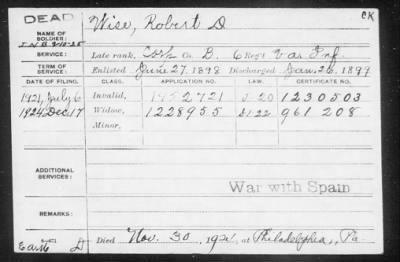 DEAD
CK
NAME OF SOLDIER: Wise, Robert D
SERVICE: Late rank, Co. B, 6 Reg't Va. Inf.
TERM OF SERVICE: Enlisted June 27, 1898 Discharged Jan. 26, 1899
DATE OF FILING. CLASS. APPLICATION NO. LAW. CERTIFICATE NO.
1921, July 6 Invalid, 1452721 J 20 1230503
1924 Dec 17 Widow, 1228955 S122 961 208
Minor,
ADDITIONAL SERVICES:
War with Spain
REMARKS:
D Died Nov. 30, 192, at Philadelphia, Pa